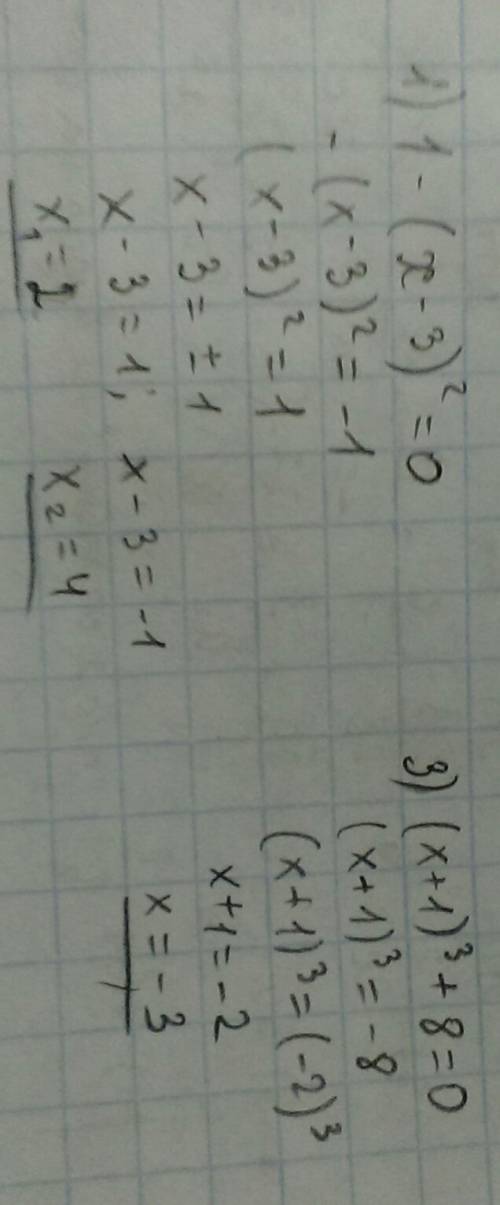 1) 1 - (x - 3)² = 0
- (x - 3)² = -1
(x - 3)² = 1
x - 3 = ± 1
x - 3 = 1; x - 3 = -1
x₁ = 2 x₂ = 4
3) (x+1)³ + 8 = 0
(x+1)³ = -8
(x+1)³ = (-2)³
x+1 = -2
x = -3